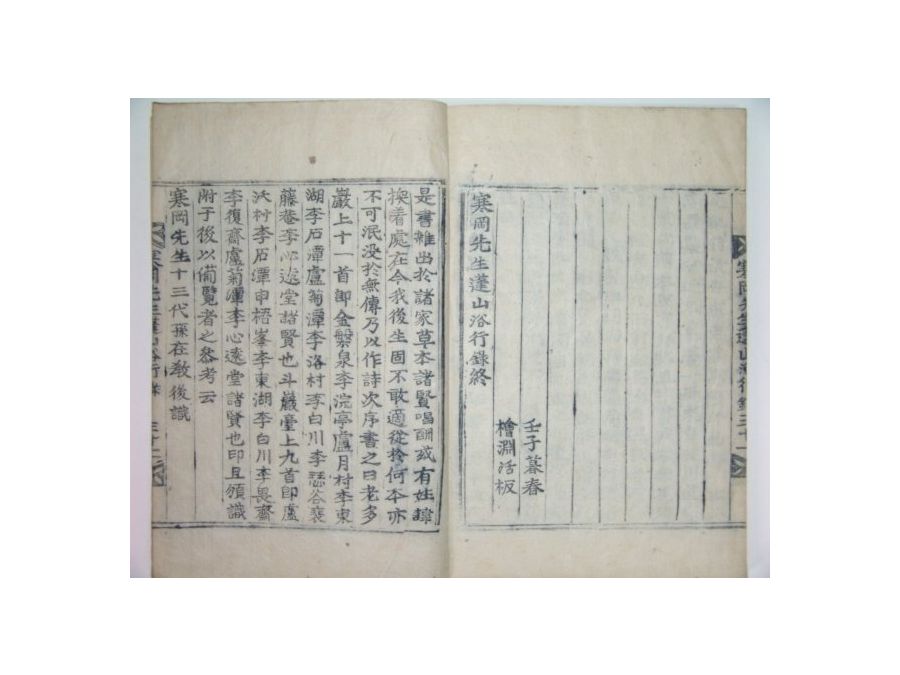 寒岡先生蓬山浴行錄終
壬子暮春
檜淵活板
是書雜出於諸家草本諸賢唱酬或有姓諱
換着處在今我後生固不敢適從於何本亦
不可泯没於無傳乃以作詩次序書之曰老多
巖上十一首卽金槃泉李浣亭盧月村李東
湖李石潭盧菊潭李洛村李白川李瑟谷裵
藤菴李心遠堂諸賢也斗巖臺上九首卽盧
沃村李石潭申梧峯李東湖李白川李畏齋
李復齋盧菊潭李心遠堂諸賢也印且頒識
附于後以備覽者之叅考云
寒岡先生十三代孫在敎後識